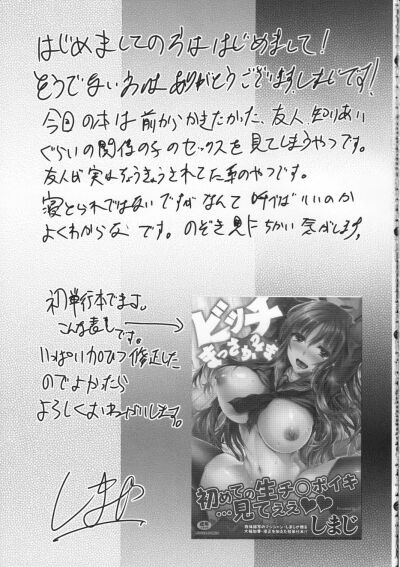 はじめましての方ははじめまして!
そうでない方はありがとうございますしまじです!
今回の本は前からかきたかった、友人、知りあい
ぐらいの関係の子のセックスを見てしまうやつです。
友人が実はちょうきょうされてた系のやつです。
寝とられではないですがなんて呼べばいいのか
よくわからないです。のぞき見にちかい気がします。
初単行本でます。
こんな表紙です。
いっぱい加ひつ修正した
のでよかったら
よろしくおねがいします。
しまじ
ビッチ
初めての生チ〇ポイキ
…見てぇぇ♥♥
しまじ